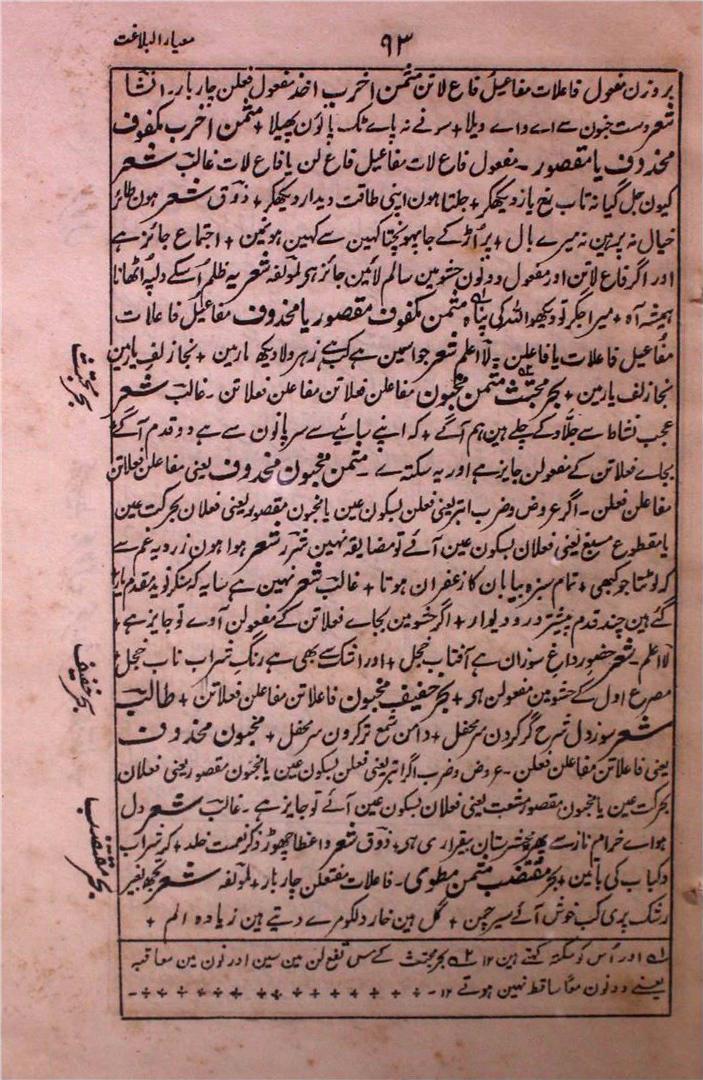 معیار البلاغت
۹۳
بروزن مفعول فاعلات مفاعیل فاع لاتن مثمن اخرب اخذ مفعول فعلن چار بار۔ انشا
شعر دست جنون سے اے واے ویلا + سونے نہ پاے ٹک پانوٗن پھیلا + مثمن اخرب مکفوف
محذوف یا مقصور۔ مفعول فاع لات مفاعیل فاع لن یا فاع لات غالبؔ شعر
کیون جل گیا نہ تاب رخ یار دیکھکر + جلتا ہون اپنی طاقت دیدار دیکھکر + ذوقؔ شعر ہون طائر
خیال نہ پر ہین نہ میرے بال + پر اُڑ کے جا پہونچتا کہین سے کہین ہون مین + اجتماع جائز ہے
اور اگر فاع لاتن اور مفعول دونون حشو مین سالم لائین جائز ہی لمؤلفہ شعر یہ ظلم اُسکے دلپہ اُٹھانا
ہمیشہ آہ + میرا جگر تو دیکھو اللہ کی پناہ مثمن مکفوف مقصور یا محذوف مفاعیل فاعلات
مفاعیل فاعلات یا فاعلن۔ لااعلم شعر جو اسمین ہے کب ہے زہر ولا دیکھ مارمین + نجاز لف یارمین
نجاز لف یارمین + بحر مجتث مثمن مخبون مفاعلن فعلاتن مفاعلن فعلاتن۔ غالبؔ شعر
عجب نشاط سے جلّاد کے چلے ہین ہم آگے + کہ اپنے سائے سے سر پانون سے ہے دو قدم آگے
بجاے فعلاتن کے مفعولن جایز ہے اور یہ سکتہ ہے۔ مثمن مخبون محذوف یعنی مفاعلن فعلاتن
مفاعلن فعلن۔ اگر عروض و ضرب ابتر یعنی فعلن بسکون عین یا مخبون مقصور یعنی فعلان بحرکت عین
یا مقطوع مسبغ یعنی فعلان بسکون عین آئے تو مضایقہ نہین شعر ہوا ہون زرد یہ غم سے
کہ لوٹتا جو کبھی + تمام سبزہ بیابان کا زعفران ہوتا + غالبؔ شعر نہین ہے سایہ کہ سنکر نوید مقدم یار
گئے ہین چند قدم پیشتر در و دیوار + اگر حشو مین بجاے فعلاتن کے مفعولن آوے تو جایز ہے +
لااعلم۔ شعر حضور داغ سوزان ہے آفتاب خجل + اور اشک سے بھی ہے رنگ شراب ناب خجل
مصرع اول کے حشو مین مفعولن ہی + بحر خفیف مخبون فاعلاتن مفاعلن فعلاتن + طالبؔ
شعر سوز دل شرح گر کردن سر محفل + دامن شمع تر کرون سر محفل + مخبون محذوف
یعنی فاعلاتن مفاعلن فعلن۔ عروض و ضرب اگر ابتر یعنی فعلن بسکون عین یا مخبون مقصور یعنی فعلان
بحرکت عین یا مخبون مقصور مشعث یعنی فعلان بسکون عین آئے تو جایز ہے۔ غالبؔ شعر دل
ہواے خرام ناز سے پھر محشرستان بیقراری ہی + ذوقؔ شعر واعظا چھوڑ ذکر نعمت خلد + کر شراب
و کباب کی باتین + بحر مقتضب مثمن مطوی۔ فاعلات مفتعلن چار بار + لمؤلفہ شعر تجھ بغیر
رشک پری کب خوش آئے سیر چمن + گل ہین خار دلکو مرے دیتے ہین زیادہ الم +
بحر مجتث
بحر خفیف
بحر مقتضب
۱؎ اور اُس کو سکتہ کہتے ہین ۱۲ ۲؎ بحر مجتث کے مس تفع لن مین سین اور نون مین معاقبہ
یعنے دونون معًا ساقط نہین ہوتے ۱۲۔